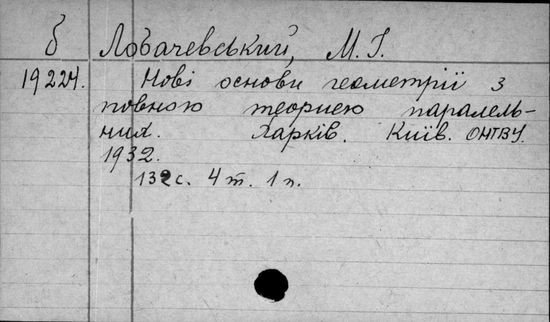 б Лобачевський, М. І.
19224. Нові основи геометрії з
повною теориею паралель-
них. Харків. Київ. ОНТВУ.
1932.
132 с. 4 т. 1 п.